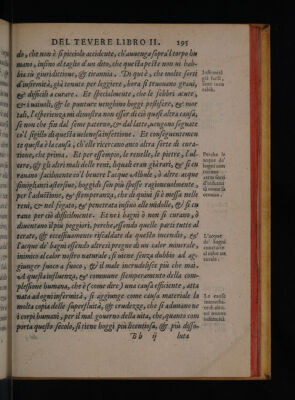 DEL TEVERE LIBRO II. 195
do, che non è sì picciolo accidente, ch'auuenga sopra'l corpo hu
mano, infino al taglio d'un dito, che questa peste non ui hab-
bia sù giuridittione, & tirannia. Di quì è, che molte sorti
d'infirmità, già tenute per leggiere, hora si truouano graui,
& difficili a curare. Et spetialmente, che le febbri acute,
& i uaiuoli, & le punture uenghino hoggi pestifere, & mor
tali, l'esperienza mi dimostra non esser di ciò quasi altra causa,
se non che sin dal seme paterno, & dal latte, uengono segnate
co'l sigillo di questa uelenosa infettione. Et conseguentemen
te questa è la causa, ch'elle ricercano anco altra sorte di cura-
tione, che prima. Et per essempio, le renelle, le pietre, l'ul-
cere, & gli altri mali delle reni, liquali eran già rari, & si cu
rauan facilmente co'l bere l'acque Albule, ò altre acque
simiglianti astersiue, hoggidì son più spesse ragioneuolmente,
per l'adustione, & distemperanza, che di quindi s'è messa nelle
reni, & nel fegato, & penetrata insino alle midolle, & si cu
rano per ciò difficilmente. Et ne i bagni ò non si curano, ò
diuentano il più peggiori, perche, essendo quelle parti tutte al
terate, & eccessiuamente riscaldate da questo incendio, &
l'acque de' bagni essendo altresì pregne di un calor minerale
inimico al calor nostro naturale, si uiene senza dubbio ad ag-
giunger fuoco a fuoco, & il male incrudelisce più che mai.
A questa influenza, & commune stemperamento della com-
plessione humana, che è (come dire) una causa efficiente, atta
nata ad ogni infermità, si aggiunge come causa materiale la
molta copia delle superfluità, & crudezze, che si adunano ne
i corpi humani, per il mal gouerno della uita, che, quanto com
porta questo secolo, si tiene hoggi più licentiosa, & più disso-
Bb ij luta
Infirmità
già facili,
hora incu
rabili.
Perche le
acque de'
bagni non
L'acque
de' bagni
contrarie
al calor na
turale.
La causa